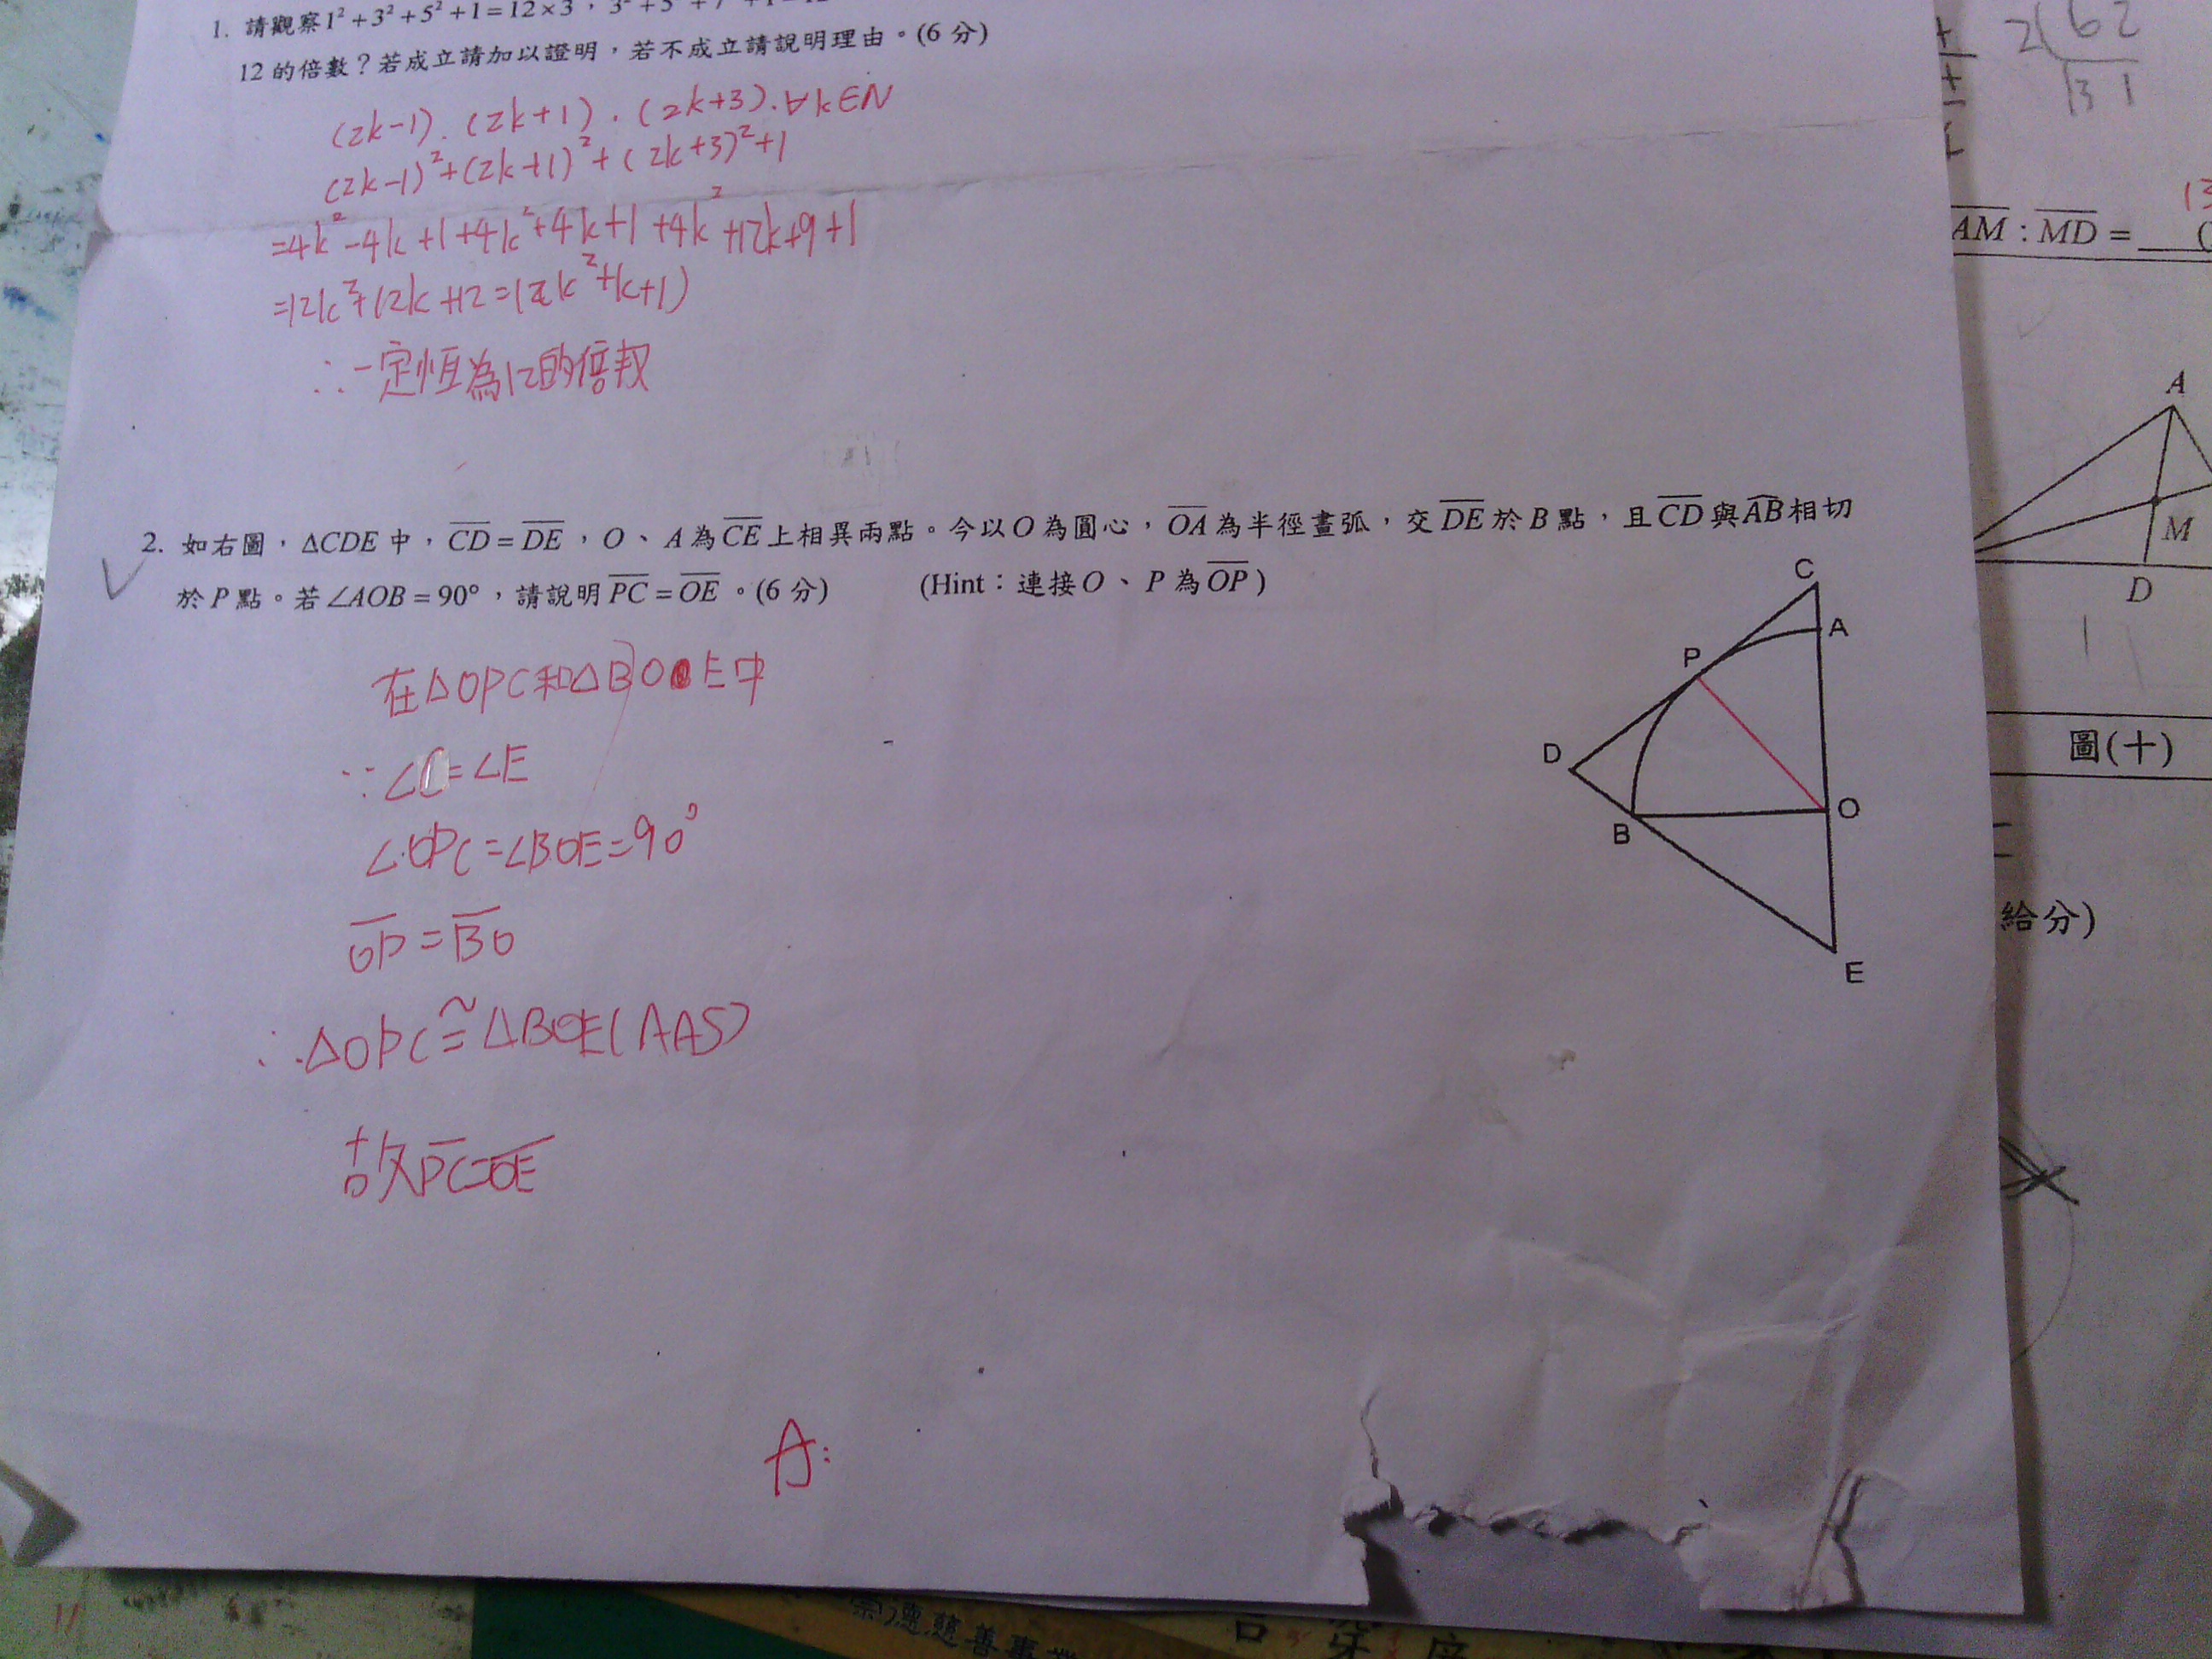 1. 請觀察1²+3²+5²+1=12×3，
12的倍數？若成立請加以證明，若不成立請說明理由。(6分)
(2k-1).(2k+1).(2k+3).∀k∈N
(2k-1)²+(2k+1)²+(2k+3)²+1
=4k²-4k+1+4k²+4k+1+4k²+12k+9+1
=12k²+12k+12=12(k²+k+1)
∴一定恆為12的倍数
2. 如右圖，ΔCDE中，CD=DE，O、A為CE上相異兩點。今以O為圓心，OA為半徑畫弧，交DE於B點，且CD與AB相切
於P點。若∠AOB=90°，請說明PC=OE。(6分) (Hint：連接O、P為OP)
在△OPC和△BOE中
∵∠C=∠E
∠OPC=∠BOE=90°
OP=BO
∴△OPC≅△BOE(AAS)
故PC=OE
A:
C
A
P
D
O
B
E
2 62
31
13
AM:MD=
A
M
D
圖(十)
給分)
崇德慈善事業
11